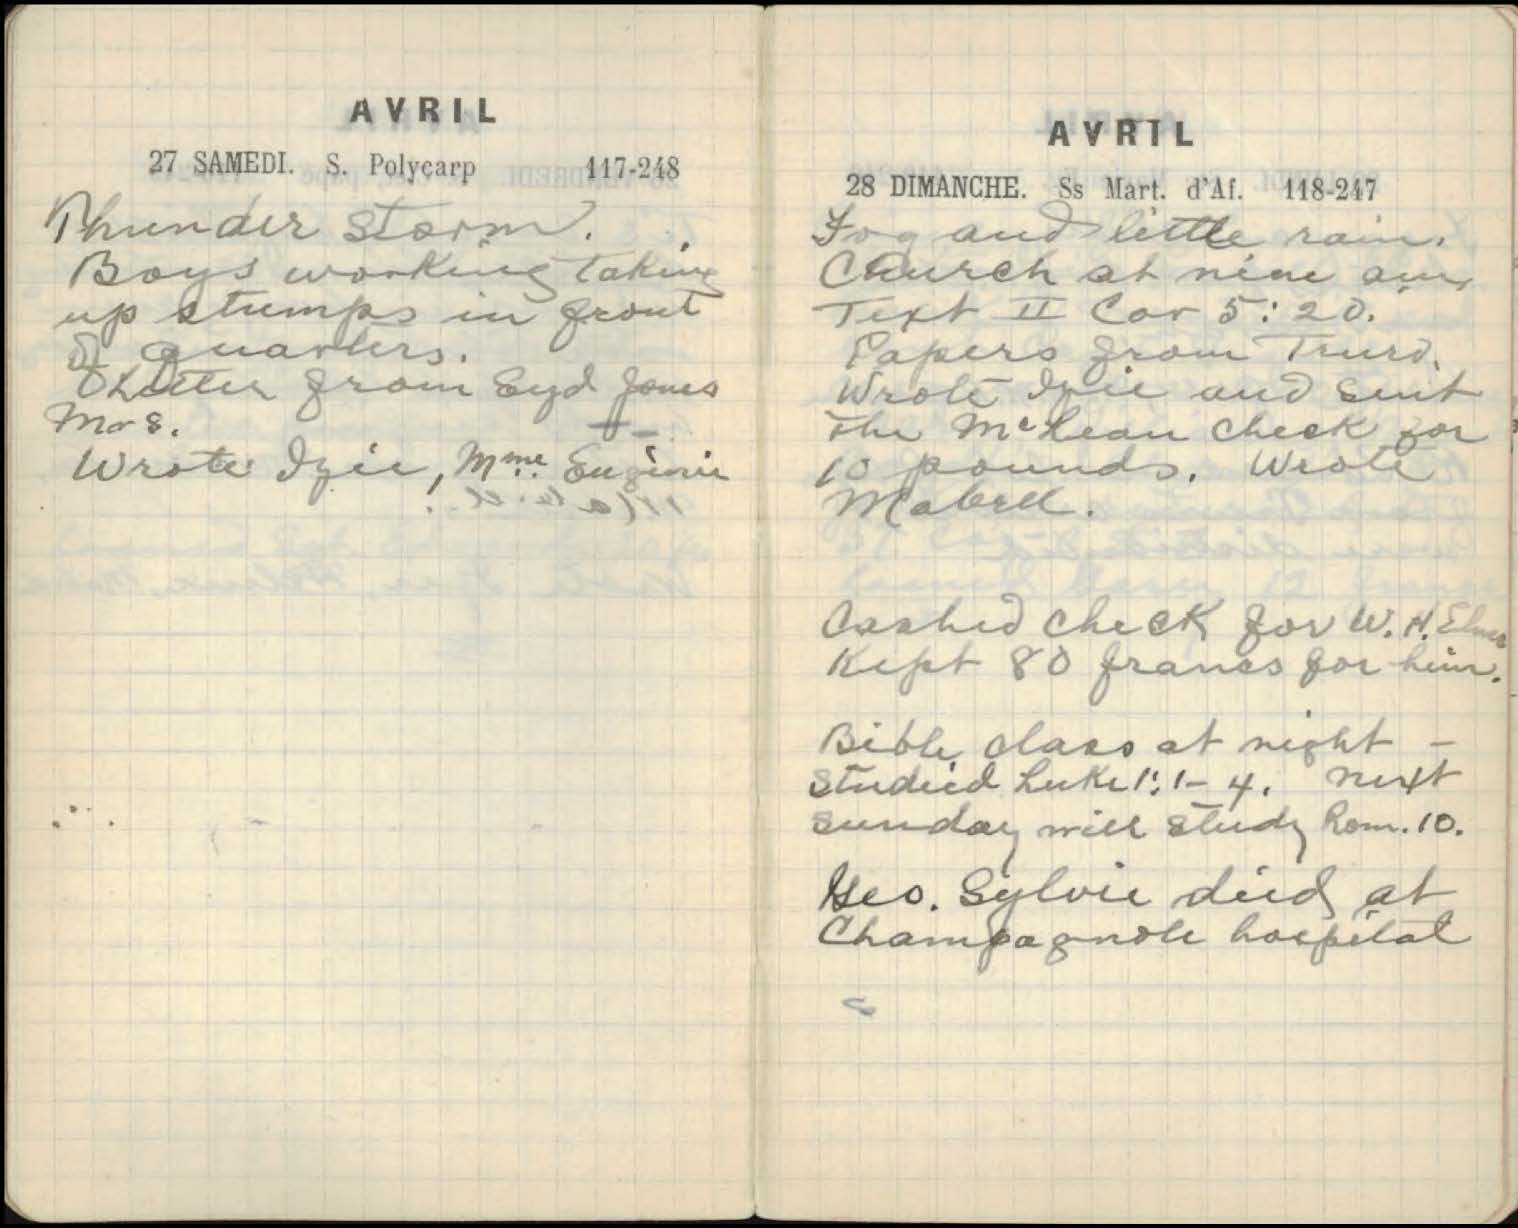 AVRIL
27 SAMEDI. S. Polycarp 117-248
Thunder storm.
Boys working taking
up stumps in front
of quarters.
Letter from Syd Jones
Mrs.
Wrote Izie, Mme. Eugenie
AVRIL
28 DIMANCHE. Ss Mart. d'Af. 118-247
Fog and little rain.
Church at nine am,
Text II Cor 5:20.
Papers from Truro.
Wrote Izie and sent
the McLean check for
10 pounds. Wrote
Mabell.
Cashed check for W. H.
Kept 80 francs for him.
Bible class at night –
Studied Luke 1:1-4. Next
Sunday will study Rom. 10.
Geo. Sylvie died at
Champagnole hospital